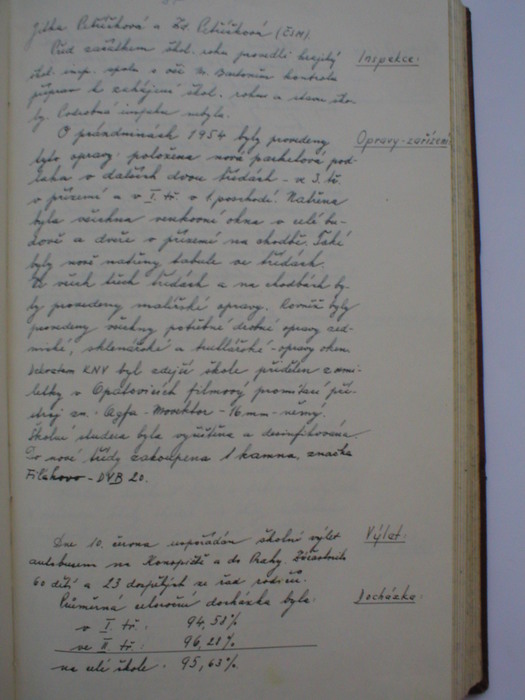 Jitka Petříčková a Zd. Petříčková (ČSM).
Před začátkem škol. roku provedli krajský
Inspekce:
škol. insp. spolu s oši M. Bartoněm kontrolu
příprav k zahájení škol. roku a stavu ško-
ly. Podrobná inspekce nebyla.
O prázdninách 1954 byly provedeny
Opravy-zařízení
tyto opravy: položena nová parketová pod-
laha v dalších dvou třídách - ve 3. tř.
v přízemí a v I. tř. v 1. poschodí. Natřena
byla všechna venkovní okna v celé bu-
dově a dveře v přízemí na chodbě. Také
byly nově natřeny tabule ve třídách.
Ve všech třech třídách a na chodbách by-
ly provedeny malířské opravy. Rovněž byly
provedeny všechny potřebné drobné opravy zed-
nické, sklenářské a truhlářské - opravy oken.
Dekretem KNV byl zdejší škole přidělen z osmi-
letky v Opatovicích filmový promítací pří-
stroj zn. Agfa - Movektor - 16 mm - němý.
Školní studna byla vyčištěna a desinfikována.
Do nové třídy zakoupena 1 kamna, značka
Filakovo - DVB 20.
Dne 10. června uspořádán školní výlet
Výlet:
autobusem na Konopiště a do Prahy. Zúčastnilo
60 dětí a 23 dospělých ze řad rodičů.
Průměrná celoroční docházka byla:
Docházka:
v I. tř.: 94,58%
ve II. tř.: 96,28%
na celé škole: 95,63%.